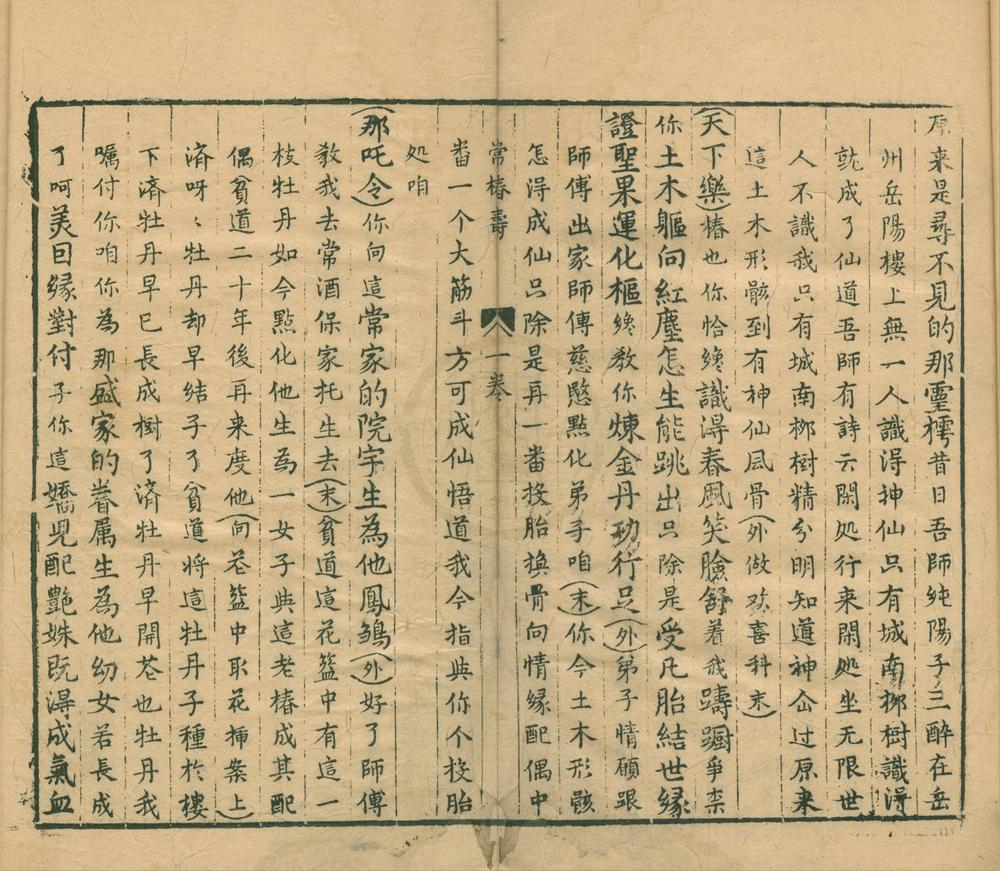 原来是尋不見的那靈樗昔日吾師純陽子三醉在岳
州岳陽樓上無一人識得神仙只有城南栁樹識得
就成了仙道吾師有詩云閑処行来閑処坐无限世
人不識我只有城南栁樹精分明知道神仚过原来
這土木形骸到有神仙凮骨(外做欢喜科末)
(天下樂)椿也你恰纔識得春風笑臉舒着我躊蹰爭柰
你土木軀向紅塵怎生能跳出只除是受凡胎結世緣
證聖果運化樞纔教你煉金丹功行足(外)弟子情願跟
師傅出家師傅慈愍點化弟子咱(末)你今土木形骸
怎得成仙只除是再一番投胎換骨向情緣配偶中
常椿壽 一卷
番一个大筋斗方可成仙悟道我今指與你个投胎
処咱
(那吒令)你向這常家的院宇生為他鳳鶵(外)好了師傅
教我去常酒保家托生去(末)貧道這花籃中有這一
枝牡丹如今點化他生為一女子與這老椿成其配
偶貧道二十年後再来度他(向花籃中取花揷案上)
済呀〻牡丹却早結子了貧道將這牡丹子種於樓
下済牡丹早已長成樹了済牡丹早開花也牡丹我
嘱付你咱你為那盛家的眷属生為他㓜女若長成
了呵美囙縁對付子你這嬌児配艷姝既得成氣血